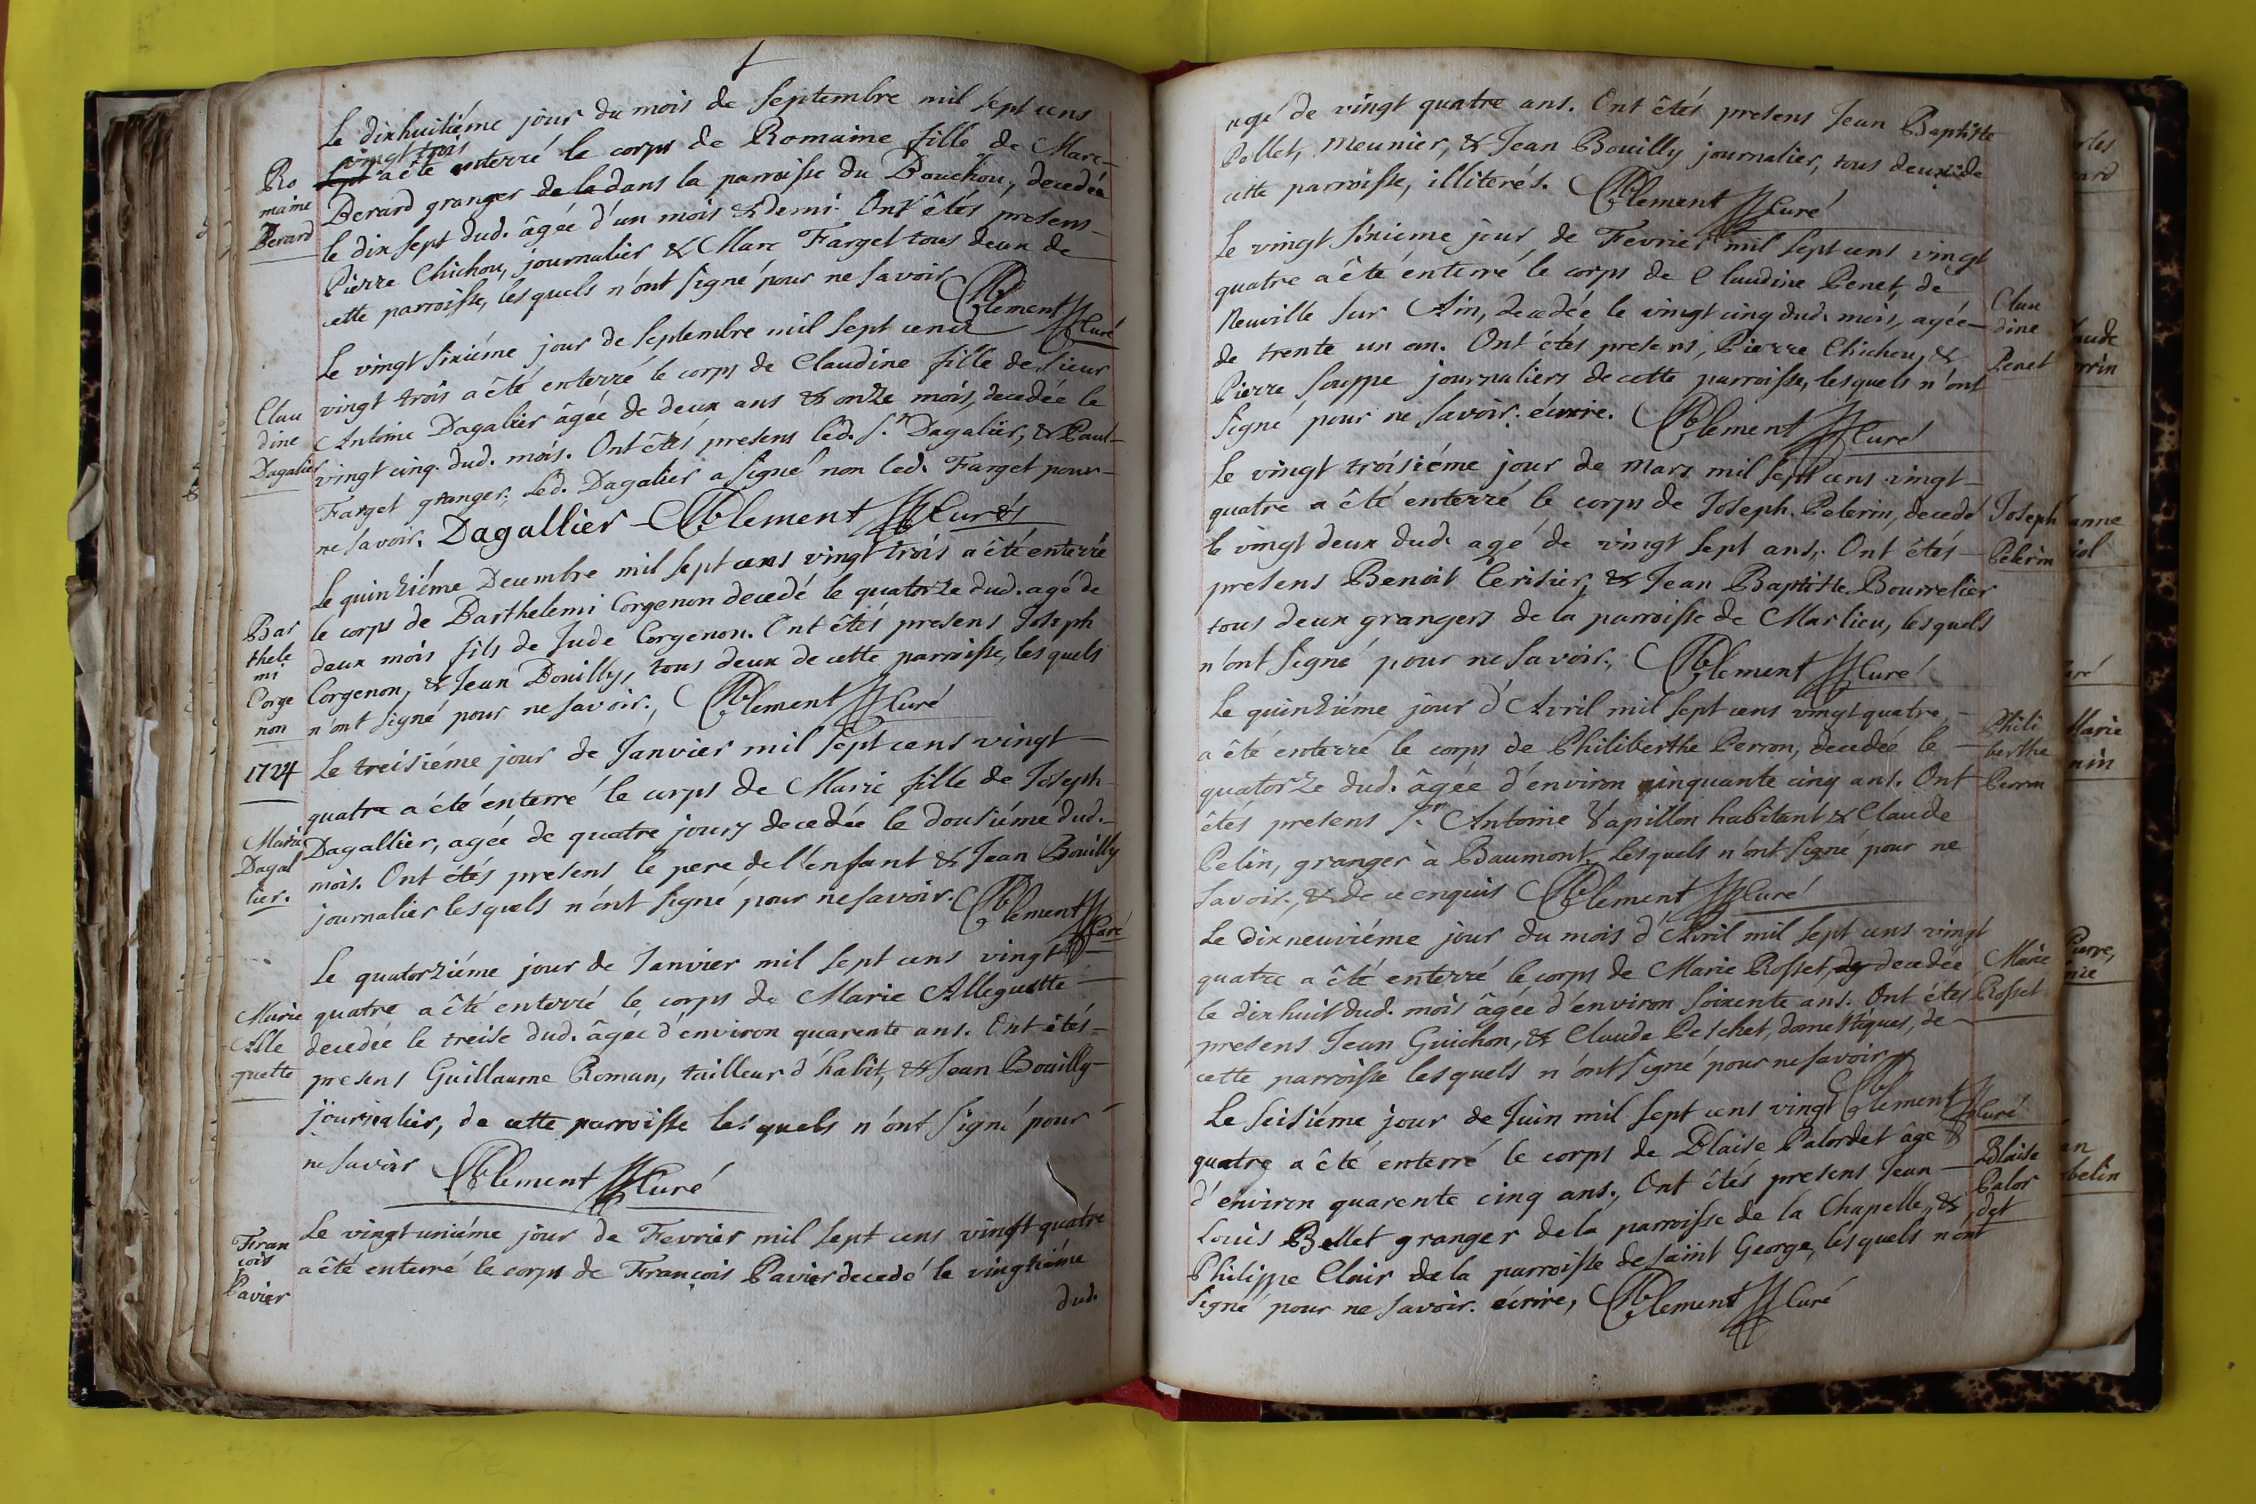 Le dixhuitiéme jour du mois de septembre mil sept cens
vingt trois
a été enterré le corps de Romaine fille de Marc
Berard granger de la dans la parroisse du Bouchou, decedée
le dix sept dud. âgée d'un mois & demi. Ont êtés presens
Pierre Chichou, journalier & Marc Farget tous deux de
cette parroisse, lesquels n'ont signé pour ne savoir
Clement Curé
Ro
maine
Berard
Le vingt sixiéme jour de septembre mil sept cens
vingt trois a été enterré le corps de Claudine fille de sieur
Antoine Dagalier âgée de deux ans & onze mois, decedée le
vingt cinq. dud. mois. Ont êtés presens led. sr. Dagalier, & Paul
Farget granger; Led. Dagalier a signé non led. Farget pour
ne savoir. Dagallier Clement Curé
Clau
dine
Dagalier
Le quinziéme Decembre mil sept cens vingt trois a été enterré
le corps de Barthelemi Corgenon decedé le quatorze dud. agé de
deux mois fils de Jude Corgenon. Ont êtés presens Joseph
Corgenon, & Jean Bouilly, tous deux de cette parroisse, lesquels
n'ont signé pour ne savoir., Clement Curé
Bar
thele
mi
Corge
non
1724
Le treisiéme jour de Janvier mil sept cens vingt
quatre a été enterré le corps de Marie fille de Joseph
Dagallier, agée de quatre jours decedée le dousiéme dud.
mois. Ont étés presens le pere de l'enfant & Jean Bouilly
journalier lesquels n'ont signé pour ne savoir. Clement Curé
Marie
Dagal
lier.
Le quatorziéme jour de Janvier mil sept cens vingt
quatre a êté enterré le corps de Marie Alleguette
decedée le treise dud. âgée d'environ quarente ans. Ont êtés
presens Guillaume Roman, tailleur d'habit, & Jean Bouilly
journalier, de cette parroisse lesquels n'ont signé pour
ne savoir Clement Curé
Marie
Alle
guette
Le vingt uniéme jour de Fevrier mil sept cens vingt quatre
a êté enterré le corps de François Pavier decedé le vingtiéme
dud.
Fran
cois
Pavier
agé de vingt quatre ans. Ont êtés presens Jean Baptiste
Pollet, meunier, & Jean Bouilly journalier, tous deux de
cette parroisse, illiterés. Clement Curé
Le vingt sixieme jour de Fevrier mil sept cens vingt
quatre a êté enterré le corps de Claudine Penet, de
Neuville sur Ain, decedée le vingt cinq dud. mois, agée
de trente un an. Ont étés presens, Pierre Chichou, &
Pierre Souppe journaliers de cette parroisse, lesquels n'ont
signé pour ne savoir. écrire. Clement Curé
Clau
dine
Penet
Le vingt troisiéme jour de mars mil sept cens vingt
quatre a êté enterré le corps de Joseph. Pelerin, decedé
le vingt deux dud. agé de vingt sept ans, Ont étés
presens Benoit Cerisier, & Jean Baptiste Bourrelier
tous deux grangers de la parroisse de Marlieu, lesquels
n'ont signé pour ne savoir., Clement Curé
Joseph
Pelerin
Le quinziéme jour d'Avril mil sept cens vingt quatre,
a été enterré le corps de Philiberthe Perron, decedée le
quatorze dud. âgée d'environ cinquante cinq ans. Ont
êtés presens sr. Antoine Papillon habitant & Claude
Pelin, granger à Baumont, lesquels n'ont signé pour ne
savoir., & de ce enquis Clement Curé
Phili
berthe
Perron
Le dixneuviéme jour du mois d'Avril mil sept cens vingt
quatre a êté enterré le corps de Marie Rosset, decedée
le dixhuit dud. mois âgée d'environ soixente ans. Ont étés
presens Jean Guichon, & Claude Peschet, domestiques, de
cette parroisse lesquels n'ont signé pour ne savoir
Clement Curé
Marie
Rosset
Le seisiéme jour de Juin mil sept cens vingt
quatre a êté enterré le corps de Blaise Palordet âgé
d'environ quarente cinq ans., Ont êtés presens Jean
Louis Bellet granger de la parroisse de la Chapelle, &
Philippe Clair de la parroisse de saint George, lesquels n'ont
signé pour ne savoir. écrire, Clement Curé
Blaise
Palor
det